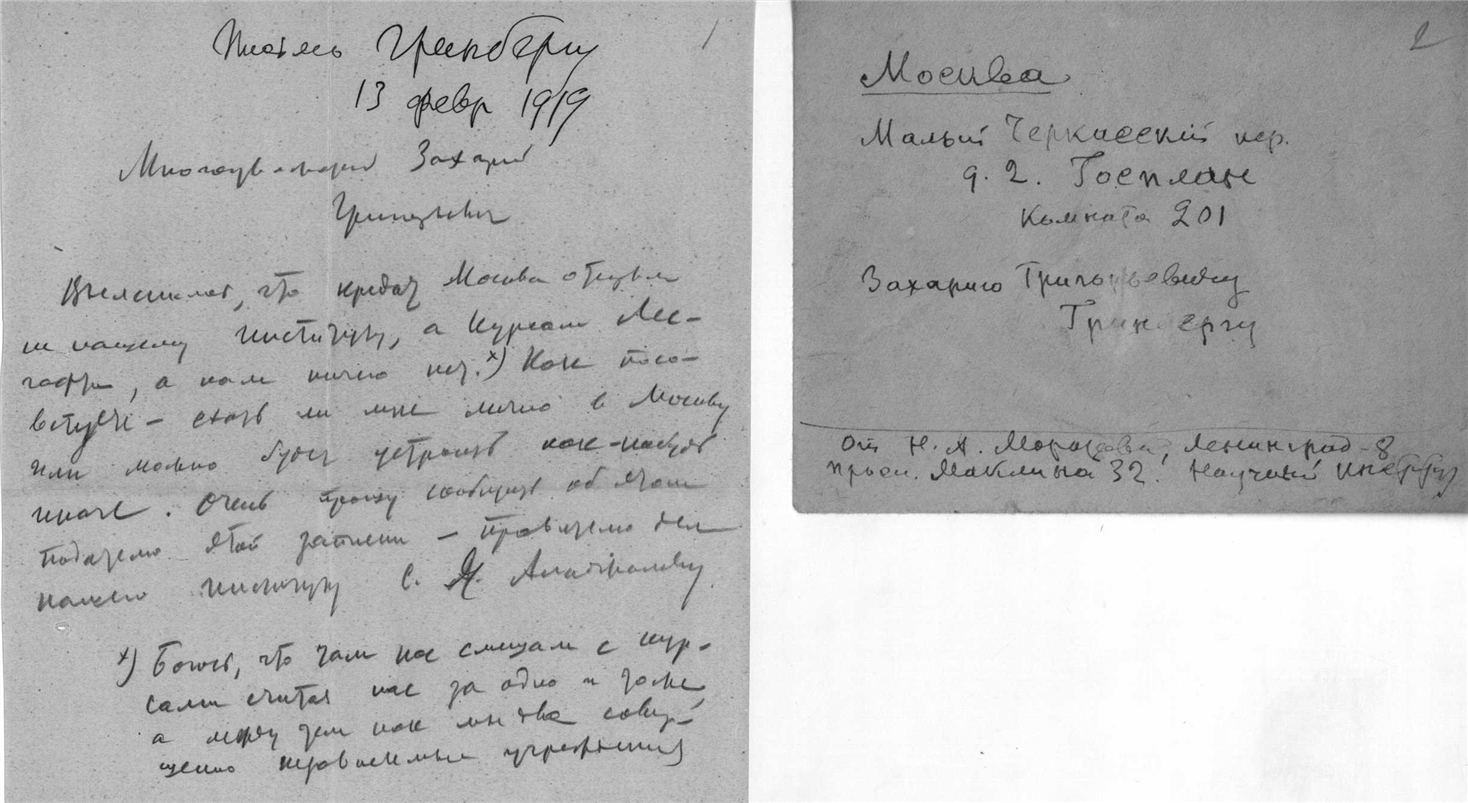 1
Писалъ Гринбергу
13 февр 1919
Многоуважаемый Захарий
Григорьевич
Выяснилось, что кредит Москва отпустила
не нашему институту, а Курсам Лес-
гафта, а нам ничего нет. x) Как посо-
ветуете – ехать ли мне лично в Москву
или можно будет устроить как-нибудь
иначе. Очень прошу сообщить об этом
подателю этой записки –
нашего института С.
x) Боюсь, что там нас смешали с кур-
сами считая нас за одно и тоже,
а между тем как мы два совер-
шенно независимые учреждения
2
Москва
Малый Черкасский пер.
д. 2. Госплан
Комната 201
Захарию Григорьевичу
Гринбергу
От Н. А. Морозова, Ленинград-8
просп. Маклина 32. Научный инст